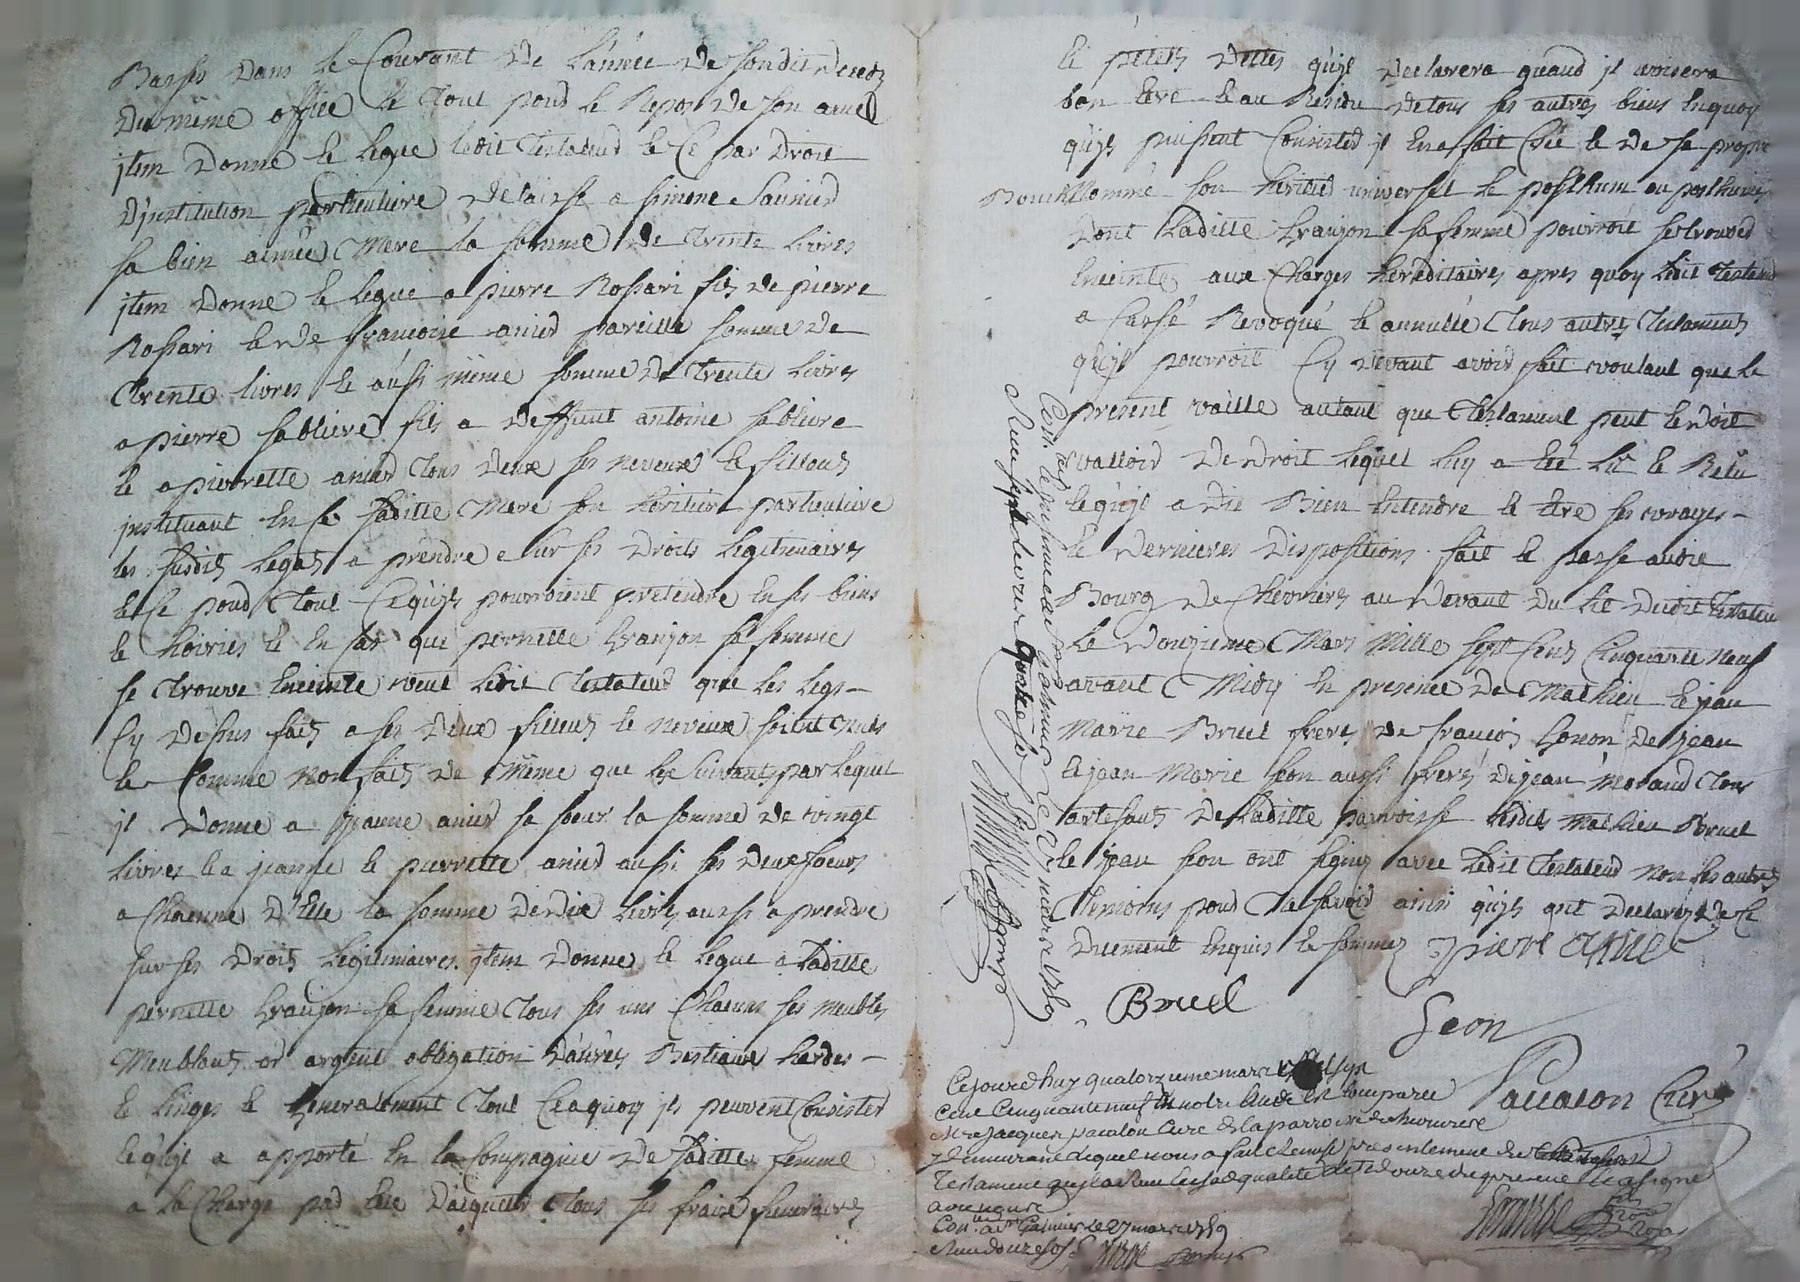 Basses dans le Courant de l'année de son dit decez
du même office le tout pour le Repos de son ame
jtem donne et legue ledit testateur et Ce par droit
d'jnstitution particuliere delaisse a simone Saunier
sa bien aimée Mere la somme de trente livres
jtem donne et legue a pierre Rossari fils de pierre
Rossari et de francoise anier pareille somme de
trente livres et aussi même somme de trente livres
a pierre sabliere fils a deffunt antoine sabliere
et a pierrette anier tous deux ses neveux et fillouls
jnstituant en Ce ladite Mere son heritiere particuliere
les susdits legats a prendre sur ses droits legitimaires
et Ce pour tout Ce qu'jls pourroient pretendre en ses biens
et hoiries et en Cas que pernette granjon sa femme
se trouve Enceinte veut ledit testateur que les legs
Cy dessus faits a ses deux filleuls et neveux soient nuls
et Comme non faits de même que les suivants par lequel
jl donne a jeanne anier sa soeur la somme de vingt
livres et a jeanne et pierrette anier aussi ses deux soeurs
a Chacune d'Elle la somme de dix livres aussi a prendre
sur ses droits legitimaires jtem donne et legue a ladite
pernette granjon sa femme tous ses uns Chacuns ses meubles
Meublants or argent obligation danrées Bestiaux hardes
et linges et generalement tout Ce a quoy jls peuvent Consister
et qu'jl a apporté en la Compagnie de ladite femme
a la Charge par Elle d'acquitter tous ses fraix funeraires
et petits dettes qu'jl declarera quand jl avisera
bon Etre et au Residu de tous ses autres biens en quoy
qu'jls puissent Consister jl En a fait Crée et de sa propre
Bouche Nommé son heritier universel le posthum ou posthumes
dont ladite granjon sa femme pourroit se trouver
Enceinte aux Charges hereditaires apres quoy ledit testateur
a Cassé Revoqué et annullé tous autres testaments
qu'jl pourroit Cy devant avoir fait voulant que le
present vaille autant que testament peut et doit
valloir de droit lequel luy a été lu et Relu
et qu'jl a dit Bien Entendre et être ses vrayes
et dernieres dispositions fait et passé audit
Bourg de Chevrieres au devant du lit dudit testateur
Le douzieme Mars Mille sept Cens Cinquante neuf
avant Midy En presence de Mathieu et jean
Marie Bruel freres de francois gonon de jean
et jean Marie seon aussi freres de jean morand tous
artesants de ladite parroisse lesdits Mathieu Bruel
et jean seon ont signez avec ledit testateur non les autres
temoins pour ne sçavoir ainsi qu'jls ont declarez de Ce
duement Enquis et sommez pierre anier
Bruel
Seon
Pacalon Curé
Cejourd'huy quatorzieme mars mil sept
Cent Cinquante neuf En notre Etude Est Comparu
Mre jacques pacalon Curé de la parroisse de Chevriere
y demeurant lequel nous a fait Remise presentement du
Testament qu'jl a Reçu En sad qualité le douze du present Et a signé
avec nous
Con. a st Galmier le 27 mars 1759
Reçu douze sols